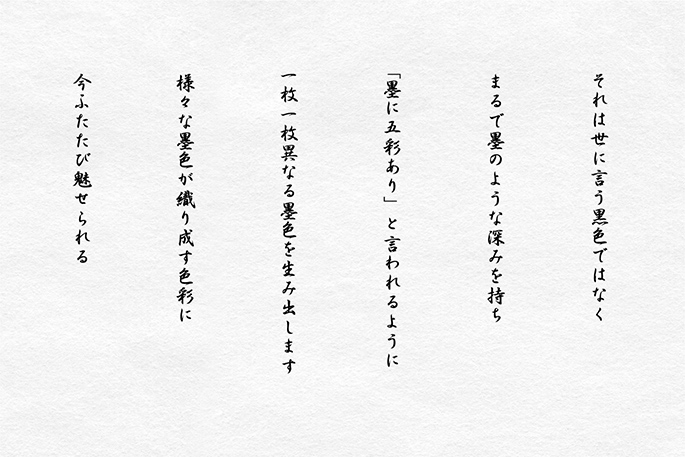 それは世に言う黒色ではなく
まるで墨のような深みを持ち
「墨に五彩あり」と言われるように
一枚一枚異なる墨色を生み出します
様々な墨色が織り成す色彩に
今ふたたび魅せられる